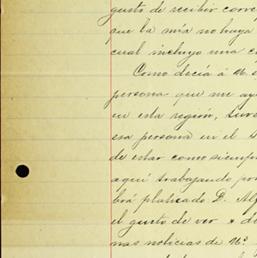 gusto de recibir corre
que la mía no haya
cual incluyo una c
Como decía á U. e
persona que me ay
en esta región, Sure
esa persona en el
de estar como siempre
aquí trabajando por
brá platicado D. Al
el gusto de ver
nas noticias de